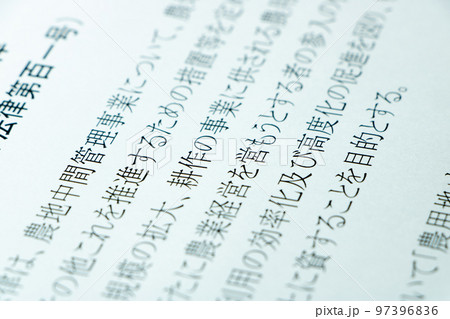 法律第百一号)
律は、農地中間管理事業について、農
の他これを推進するための措置等を定
規模の拡大、耕作の事業に供される農用
たに農業経営を営もうとする者の参入の
利用の効率化及び高度化の促進を図り
に資することを目的とする。
いて「農用地
PIXTA
pixta.jp - 97396836